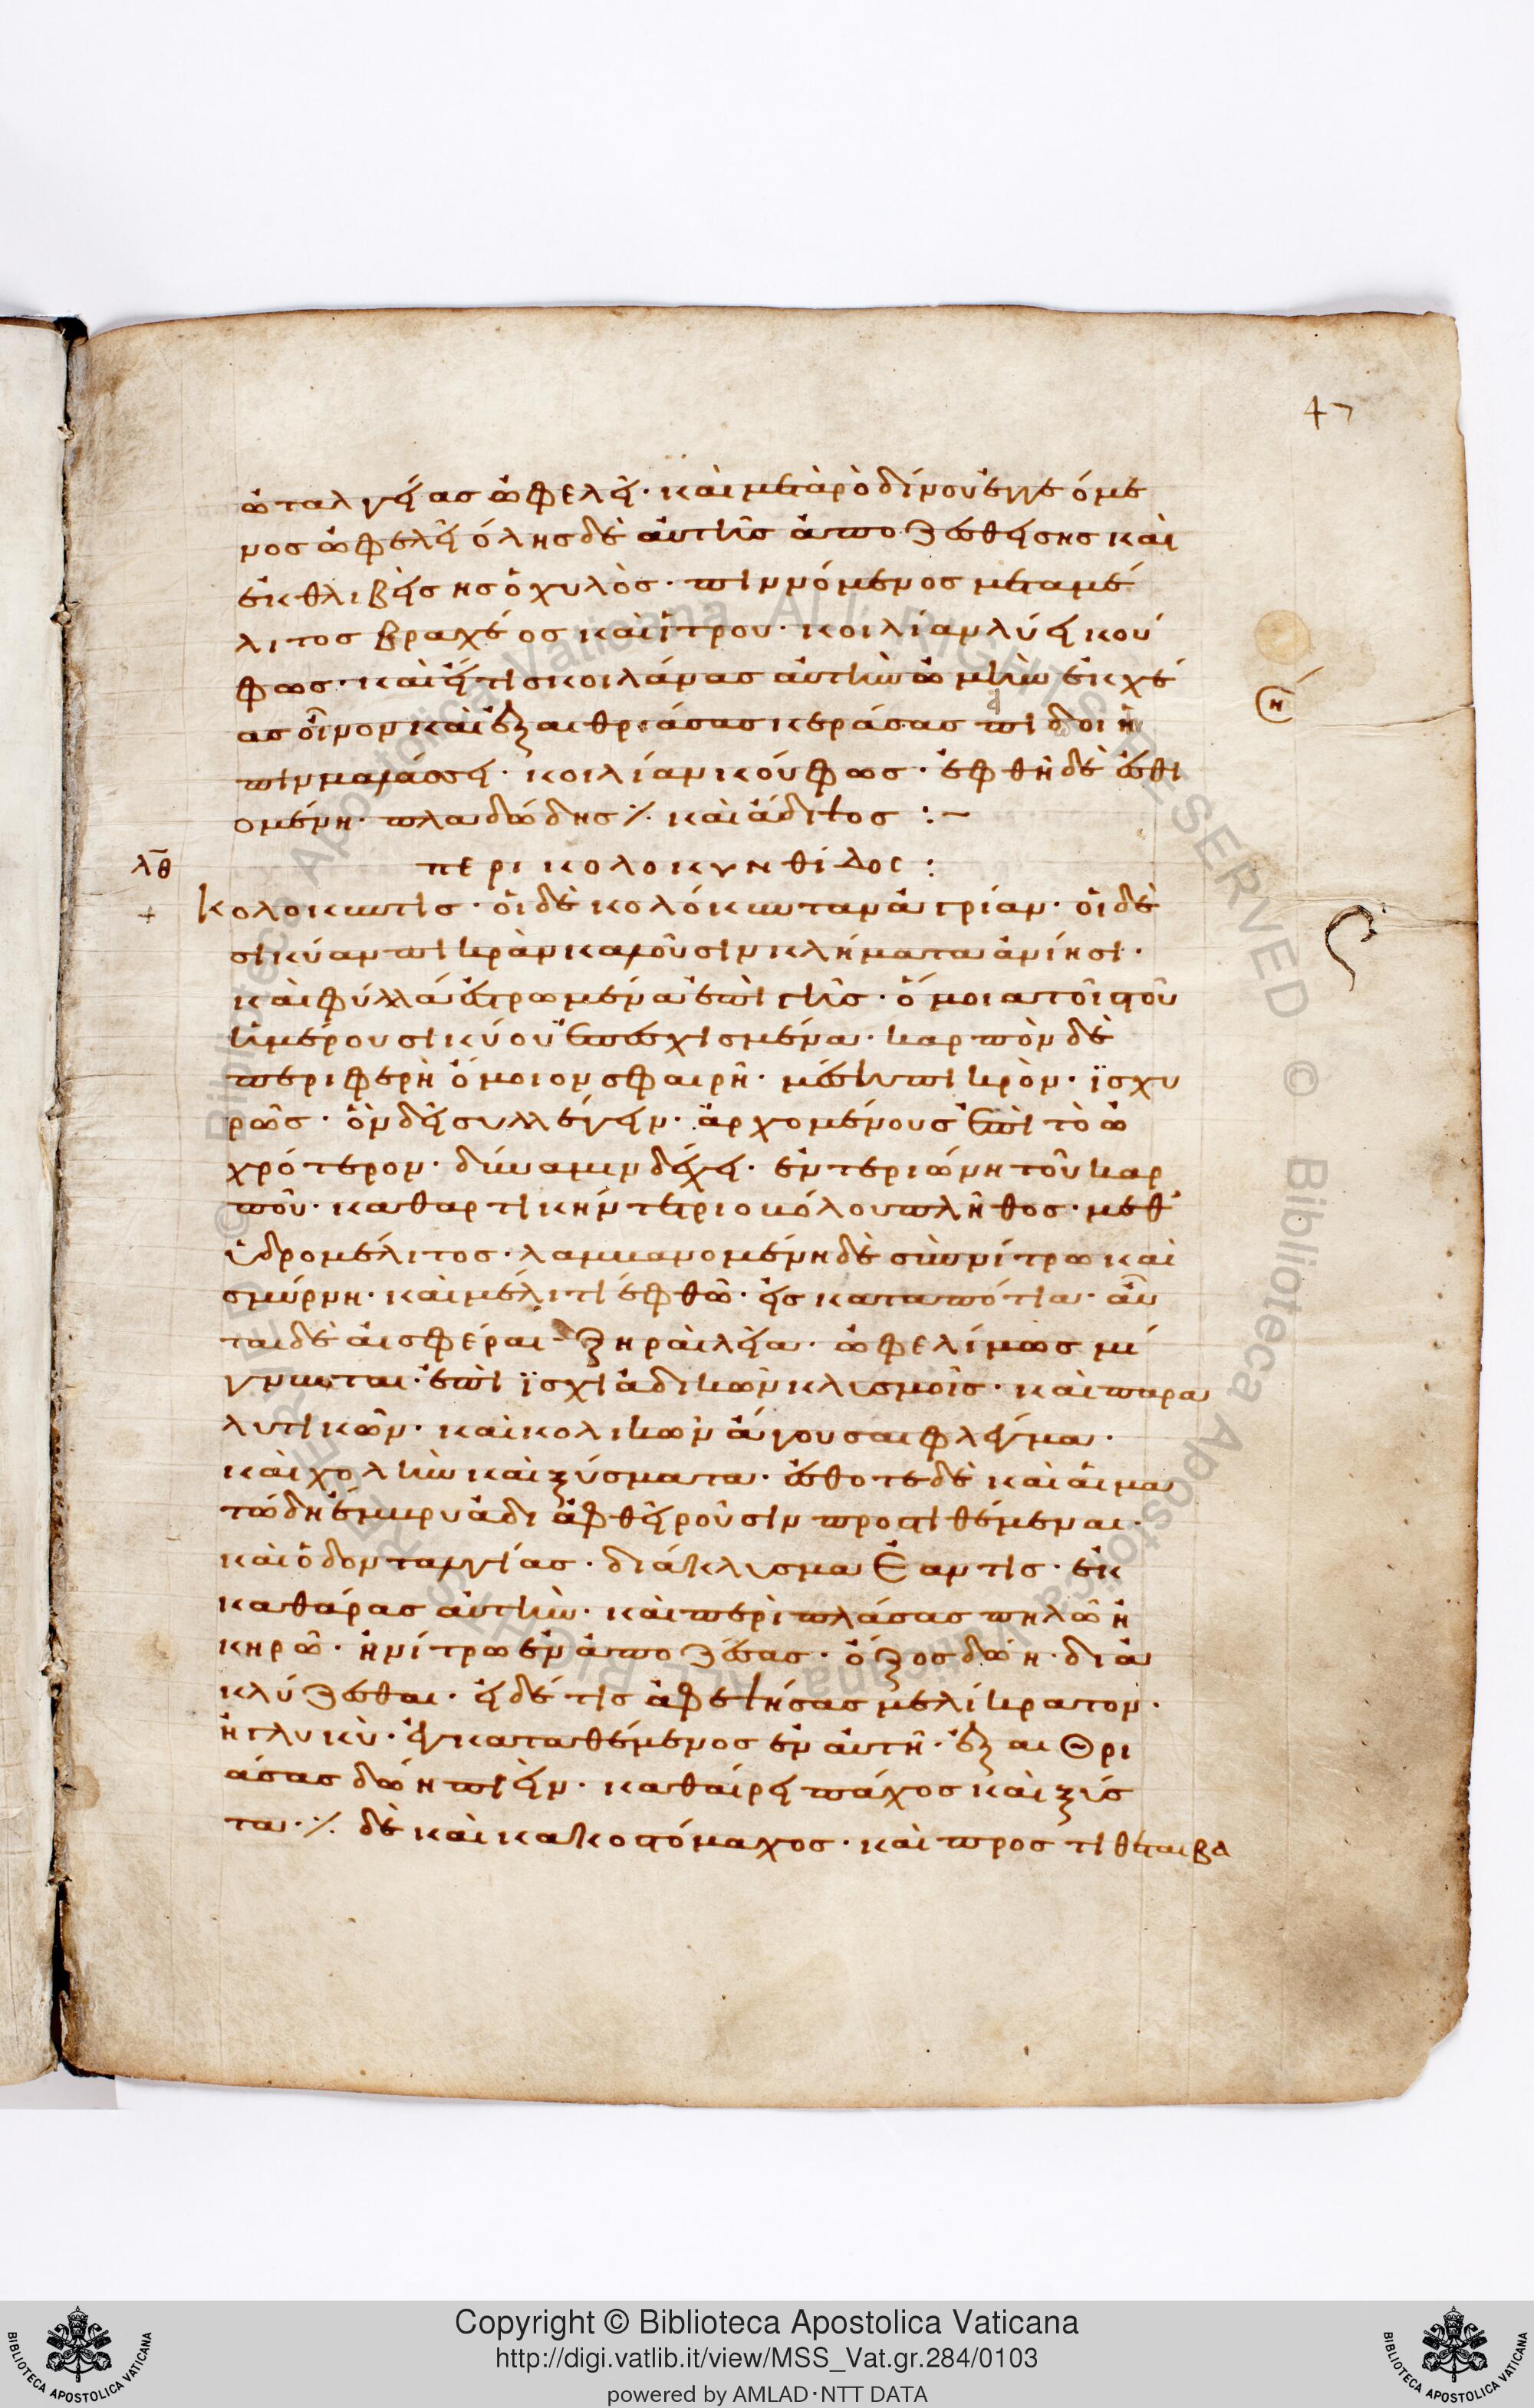 47
ὠταλγείας ὠφελεῖ· καὶ μετὰ ῥοδίνου ἐγχεόμε
νος ὠφελεῖ ὅλης δὲ αὐτῆς ἀποζεσθείσης καὶ
ἐκθλιβείσης ὁ χυλὸς· πιννόμενος μετα μέ
λιτος βραχέος καὶ νίτρου· κοιλίαν λύει κού
φως· καὶ εἴ τις κοιλάνας αὐτὴν ὠμὴν ἐκχέ
ας οἶνον καὶ ἐξαιθριάσας κεράσας πι δοιη
πιν μαλάσσει· κοιλίαν κούφως· ἐφθὴ δὲ ἐσθι
ομένη· πλαδώδης ·/. καὶ ἄδιτος :-
λθ
περι κολοκυνθίδος :
κολοκυντις· οἱ δὲ κολόκυνταν ἀγρίαν· οἱ δὲ
σικύαν πικρὰν καλοῦσιν κλήματα ἀνίησι·
καὶ φύλλα ἐστρωμένα ἐπὶ γῆς· ὅμοια τοῖς τοῦ
ἡμέρου σικύου ἐπεσχισμένα· καρπὸν δὲ
περιφερῆ ὅμοιον σφαιρῆ· μέση πικρὸν· ϊσχυ
ρῶς· ὃν δεῖ συλλέγειν· ἀρχομένους ἐπὶ τὸ ὠ
χρότερον· δύναμιν δέχει· ἐντεριώνη τοῦ καρ
ποῦ· καθαρτικήν τετριοβόλου πλῆθος· μεθ
ὑδρομέλιτος· λαμβανομένη δὲ σὺν νίτρω καὶ
σμύρνη· καὶ μέλιτί ἐφθῶ· εἰς καταπότια· αὗ
ται δὲ αἱ σφέραι ξηραὶ λεῖα· ὠφελίμως μί
γνυται· ἐπὶ ϊσχιάδικῶν κλυσμοῖς· καὶ παρα
λυτικῶν· καὶ κολικῶν ἄγουσαι φλέγμα·
καὶ χολὴν καὶ ξύσματα· ἔσθοτε δὲ καὶ αἷμα
τώδη ἔμβρυά δι ἀφθείρουσιν προστιθέμεναι·
καὶ ὀδονταλγίας· διάκλυσμα ἐὰν τις· ἐκ
καθάρας αὐτὴν· καὶ περιπλάσας πηλῶ ἢ
κηρῶ· ἢ νίτρω ἐναποζέσας· ὄξος δώη· δια
κλύζεσθαι· εἰ δέ τις ἀφεψήσας μελίκρατον·
ἢ γλυκὺ· ἐγκαταθέμενος ἐν αὐτῆ· ἐξαιθρι
άσας δώη πιεῖν· καθαίρει πάχος καὶ ξύσ
τα· ·/. δὲ καὶ κακοστόμαχος· καὶ προστίθεται βα
Copyright © Biblioteca Apostolica Vaticana
http://digi.vatlib.it/view/MSS_Vat.gr.284/0103
powered by AMLAD·NTT DATA
BIBLIOTECA APOSTOLICA VATICANA
BIBLIOTECA APOSTOLICA VATICANA